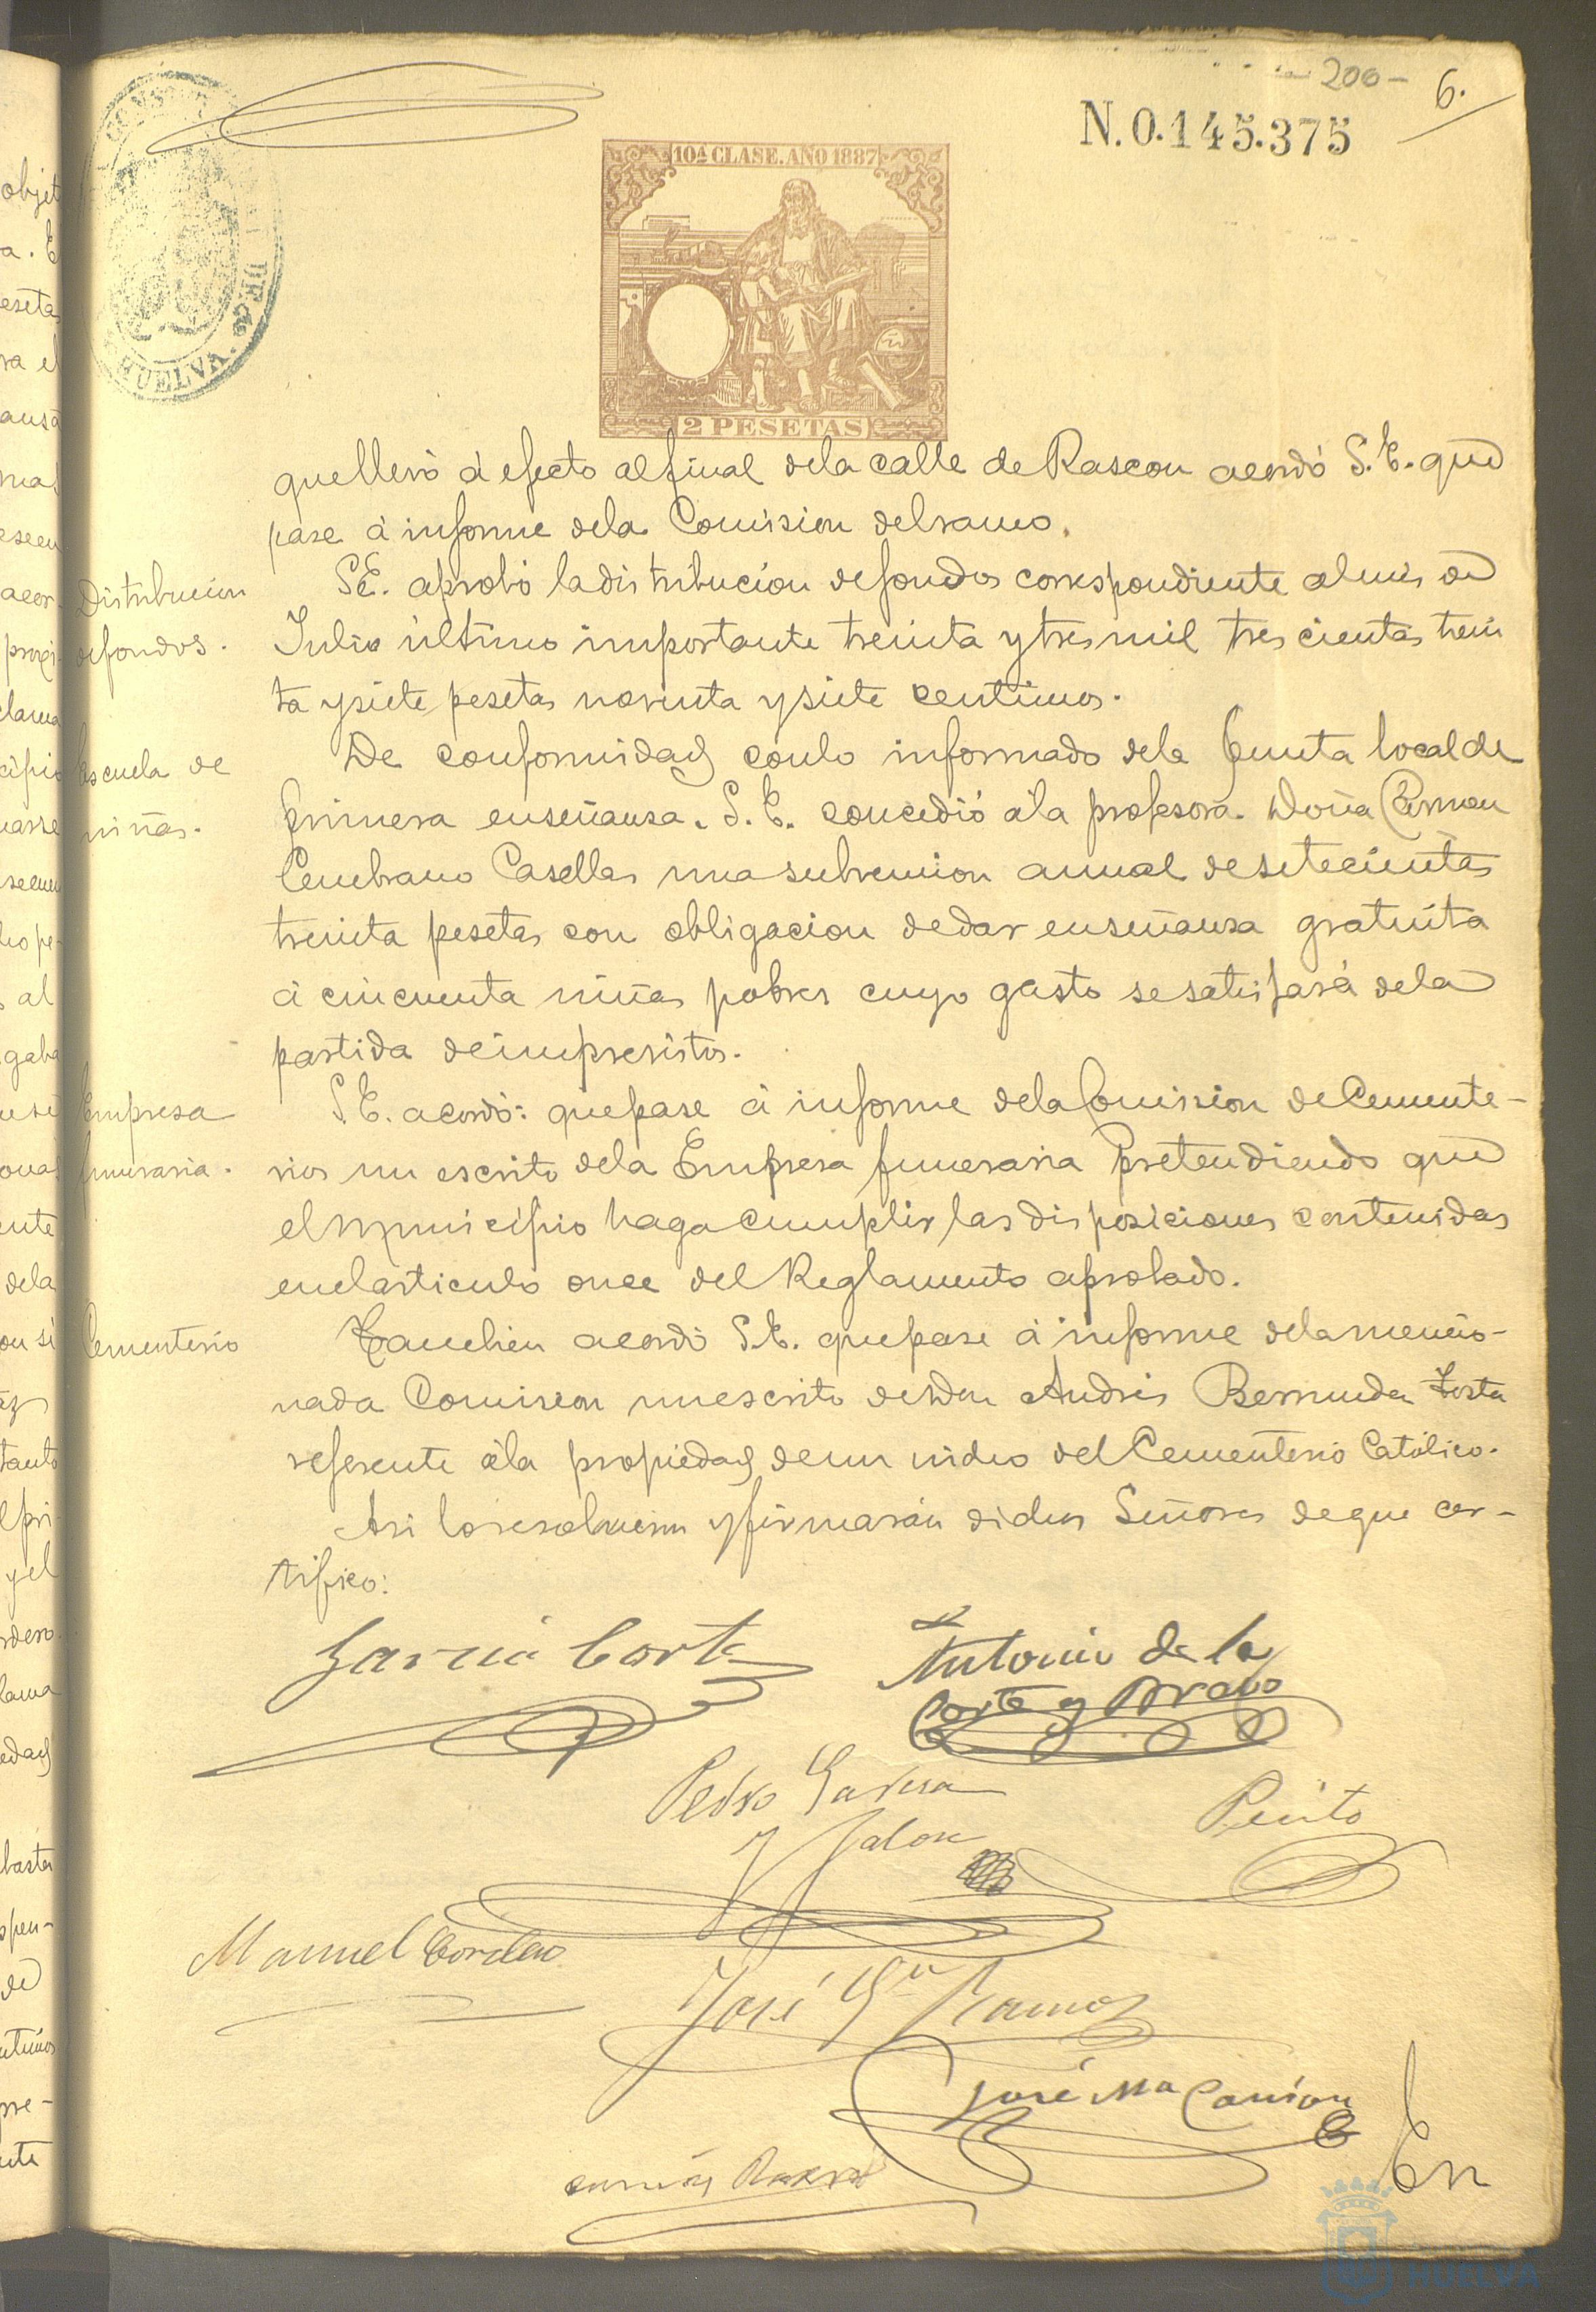 200-
6.
N.0.145.375
10ª CLASE. AÑO 1887
CONST
DE
HUELVA.
2 PESETAS
que llevó á efecto al final de la calle de Rascon acordó S.E. que
pase á informe de la Comision del ramo.
Distribucion
de fondos.
S.E. aprobó la distribucion de fondos correspondiente al mes de
Julio último importante treinta y tres mil trescientas trein
ta y siete pesetas noventa y siete centimos.
Escuela de
niñas.
De conformidad con lo informado de la Junta local de
primera enseñansa. S.E. concedió á la profesora Doña Carmen
Cembrano Casellas una subvencion anual de setecientas
treinta pesetas con obligacion de dar enseñansa gratuita
á cincuenta niñas pobres cuyo gasto se satisfará de la
partida de imprevistos.
Empresa
funeraria.
S.E. acordó: que pase á informe de la Comision de Cemente-
rios un escrito de la Empresa funeraria pretendiendo que
el municipio haga cumplir las disposiciones contenidas
en el articulo once del Reglamento aprobado.
Cementerio
Tambien acordó S.E. que pase á informe de la mencio-
nada Comision un escrito de Don Andrés Bermudez
referente á la propiedad de un nicho del Cementerio Católico.
Asi lo resolvieron y firmarán dichos Señores de que cer-
tifico:
Garcia Corte
Antonio de la
Corte y Bravo
Pedro Garcia
y Jalon
Pinto
Manuel Cordero
José Gª Ramos
José Mª Carrion
En
HUELVA